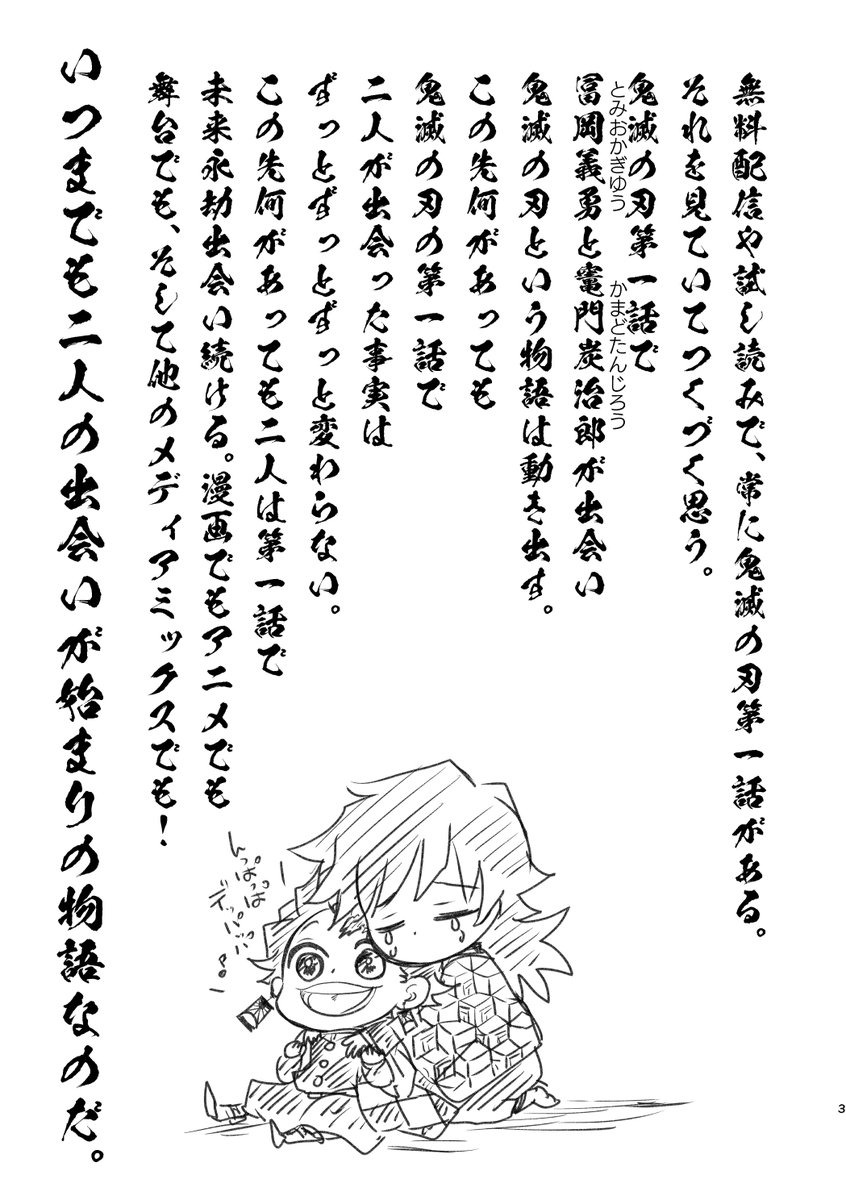 無料配信や試し読みで、常に鬼滅の刃第一話がある。
それを見ていてつくづく思う。
鬼滅の刃第一話で
冨岡義勇と竈門炭治郎が出会い
とみおかぎゆう
かまどたんじろう
鬼滅の刃という物語は動き出す。
この先何があっても
鬼滅の刃の第一話で
二人が出会った事実は
ずっとずっとずっと変わらない。
この先何があっても二人は第一話で
未来永劫出会い続ける。漫画でもアニメでも
舞台でも、そして他のメディアミックスでも!
いつまでも二人の出会いが始まりの物語なのだ。
3